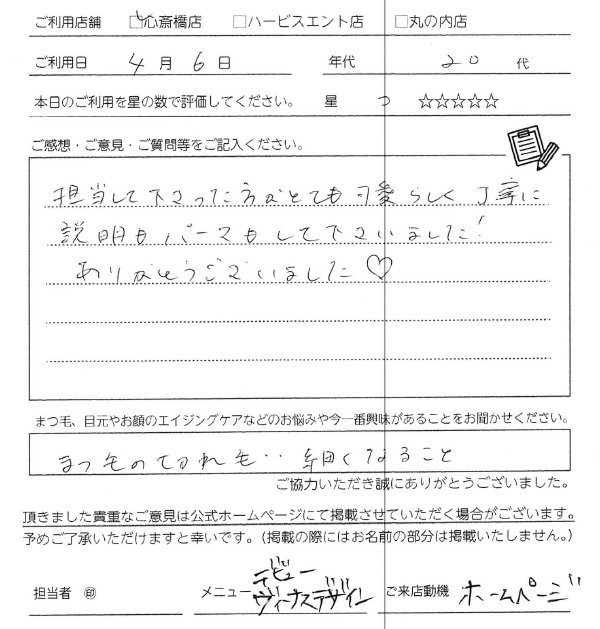 ご利用店舗 □心斎橋店 □ハービスエント店 □丸の内店
ご利用日 4月6日 年代 20代
本日のご利用を星の数で評価してください。 星 つ ☆☆☆☆☆
ご感想・ご意見・ご質問等をご記入ください。
担当して下さった方がとても可愛らしく丁寧に
説明もパーマもして下さいました!
ありがとうございました♡
まつ毛、目元やお顔のエイジングケアなどのお悩みや今一番興味があることをお聞かせください。
まつ毛の切れ毛‥ 細くなること
ご協力いただき誠にありがとうございました。
頂きました貴重なご意見は公式ホームページにて掲載させていただく場合がございます。
予めご了承いただけますと幸いです。(掲載の際にはお名前の部分は掲載いたしません。)
担当者 ㊞ メニュー デビューヴィーナスデザイン ご来店動機 ホームページ